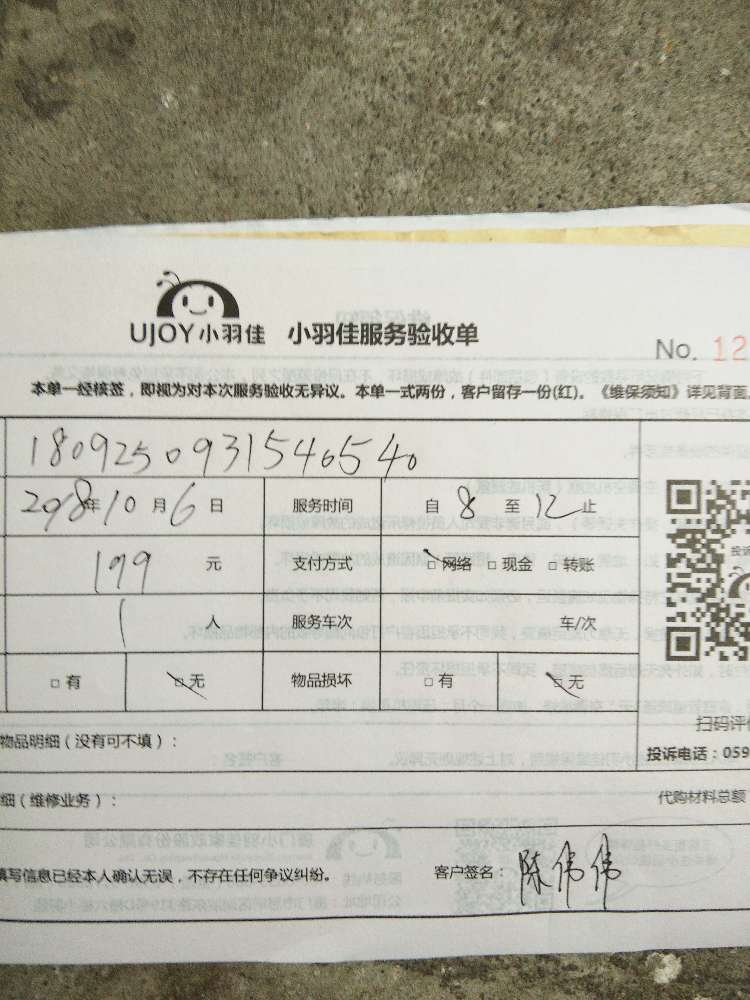 UJOY小羽佳 小羽佳服务验收单
No. 12
本单一经核签，即视为对本次服务验收无异议。本单一式两份，客户留存一份(红)。《维保须知》详见背面。
1809250931540540
2018年10月6日 服务时间 自8至12止
199元 支付方式 □网络 □现金 □转账
1人 服务车次 车/次
□有 □无 物品损坏 □有 □无
扫码评价
物品明细（没有可不填）：
投诉电话：059
细（维修业务）：
代购材料总额
填写信息已经本人确认无误，不存在任何争议纠纷。 客户签名：陈伟伟